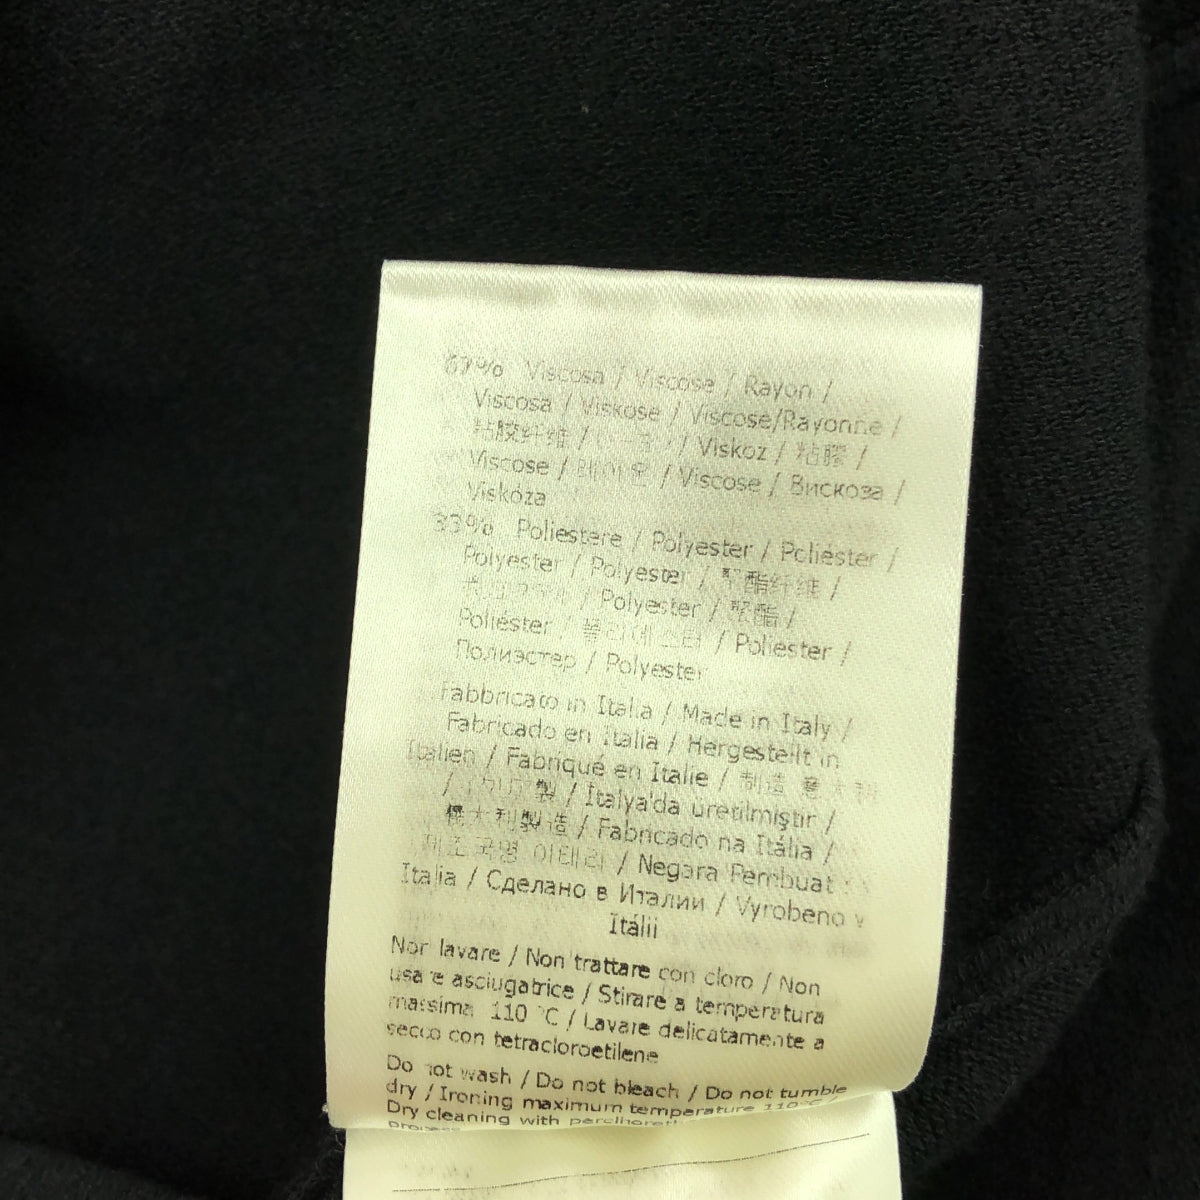 67% Viscosa / Viscose / Rayon /
Viscosa / Viskose / Viscose/Rayonne /
粘胶纤维 / / Viskoz / 粘膠 /
Viscose / 레이온 / Viscose / Вискоза /
Viskóza
33% Poliestere / Polyester / Poliéster /
Polyester / Polyester / 聚酯纤维 /
/ Polyester / 聚酯 /
Poliéster / 폴리에스터 / Poliester /
Полиэстер / Polyester
Fabbricato in Italia / Made in Italy /
Fabricado en Italia / Hergestellt in
Italien / Fabriqué en Italie / 制造 意大利
/ イタリア製 / İtalya'da üretilmiştir /
大利製造 / Fabricado na Itália /
제조국명 이태리 / Negara Pembuat :
Italia / Сделано в Италии / Vyrobeno v
Itálii
Non lavare / Non trattare con cloro / Non
usare asciugatrice / Stirare a temperatura
massima 110 °C / Lavare delicatamente a
secco con tetracloroetilene
Do not wash / Do not bleach / Do not tumble
dry / Ironing maximum temperature 110°C /
Dry cleaning with
Process